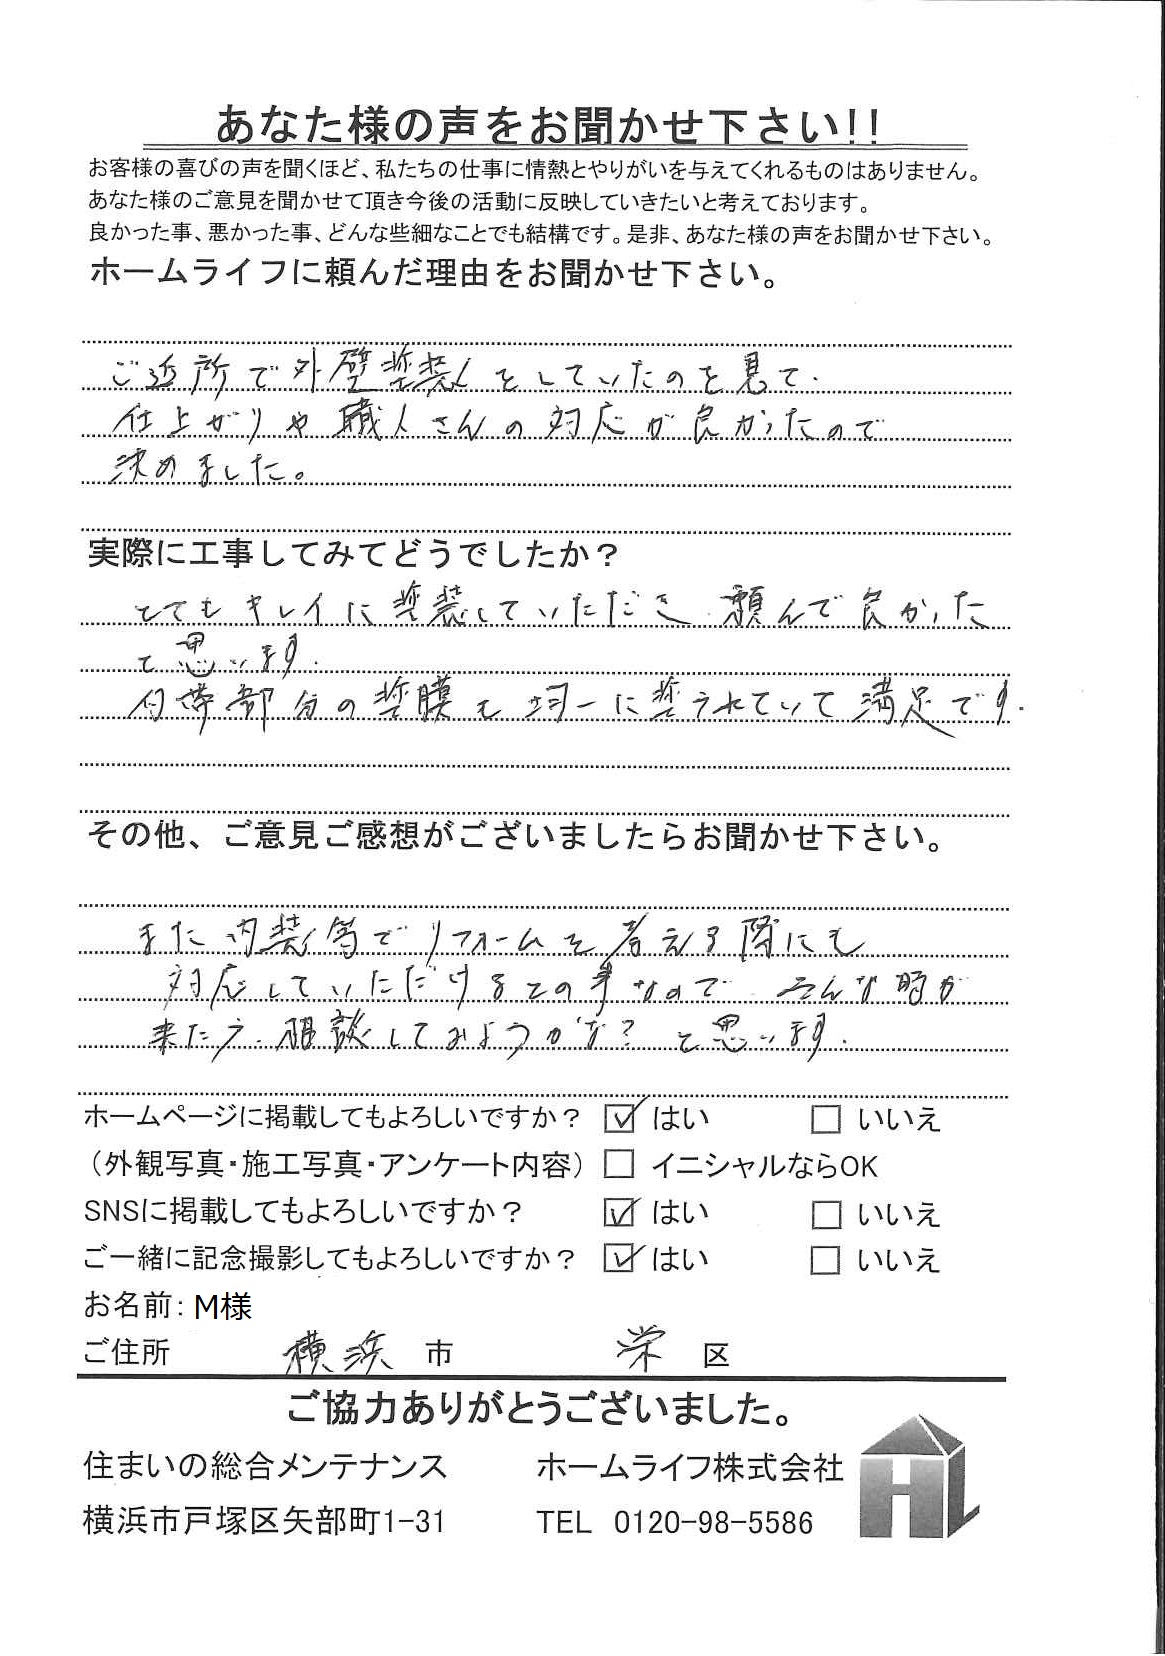 あなた様の声をお聞かせ下さい!!
お客様の喜びの声を聞くほど、私たちの仕事に情熱とやりがいを与えてくれるものはありません。
あなた様のご意見を聞かせて頂き今後の活動に反映していきたいと考えております。
良かった事、悪かった事、どんな些細なことでも結構です。是非、あなた様の声をお聞かせ下さい。
ホームライフに頼んだ理由をお聞かせ下さい。
ご近所で外壁塗装をしていたのを見て、
仕上がりや職人さんの対応が良かったので
決めました。
実際に工事してみてどうでしたか？
とてもキレイに塗装していただき、頼んで良かった
と思います。
付帯部分の塗膜も均一に塗られていて満足です。
その他、ご意見ご感想がございましたらお聞かせ下さい。
また内装等でリフォームを考える際にも
対応していただけるとの事なので、そんな時が
来たら、相談してみようかな？と思います。
ホームページに掲載してもよろしいですか？ ☑ はい □ いいえ
（外観写真・施工写真・アンケート内容） □ イニシャルならOK
SNSに掲載してもよろしいですか？ ☑ はい □ いいえ
ご一緒に記念撮影してもよろしいですか？ ☑ はい □ いいえ
お名前：M様
ご住所 横浜 市 栄 区
ご協力ありがとうございました。
住まいの総合メンテナンス ホームライフ株式会社
横浜市戸塚区矢部町1-31 TEL 0120-98-5586
HL